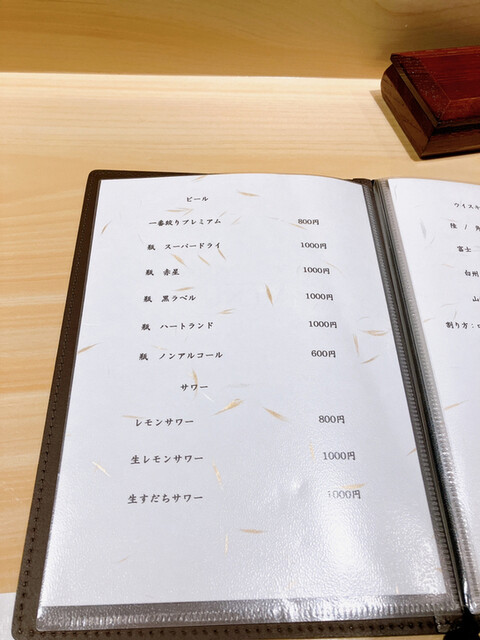 ビール
一番絞りプレミアム 800円
瓶 スーパードライ 1000円
瓶 赤星 1000円
瓶 黒ラベル 1000円
瓶 ハートランド 1000円
瓶 ノンアルコール 600円
サワー
レモンサワー 800円
生レモンサワー 1000円
生すだちサワー 1000円
ウイスキ
陸 / 角
富士
白州
山
割り方: